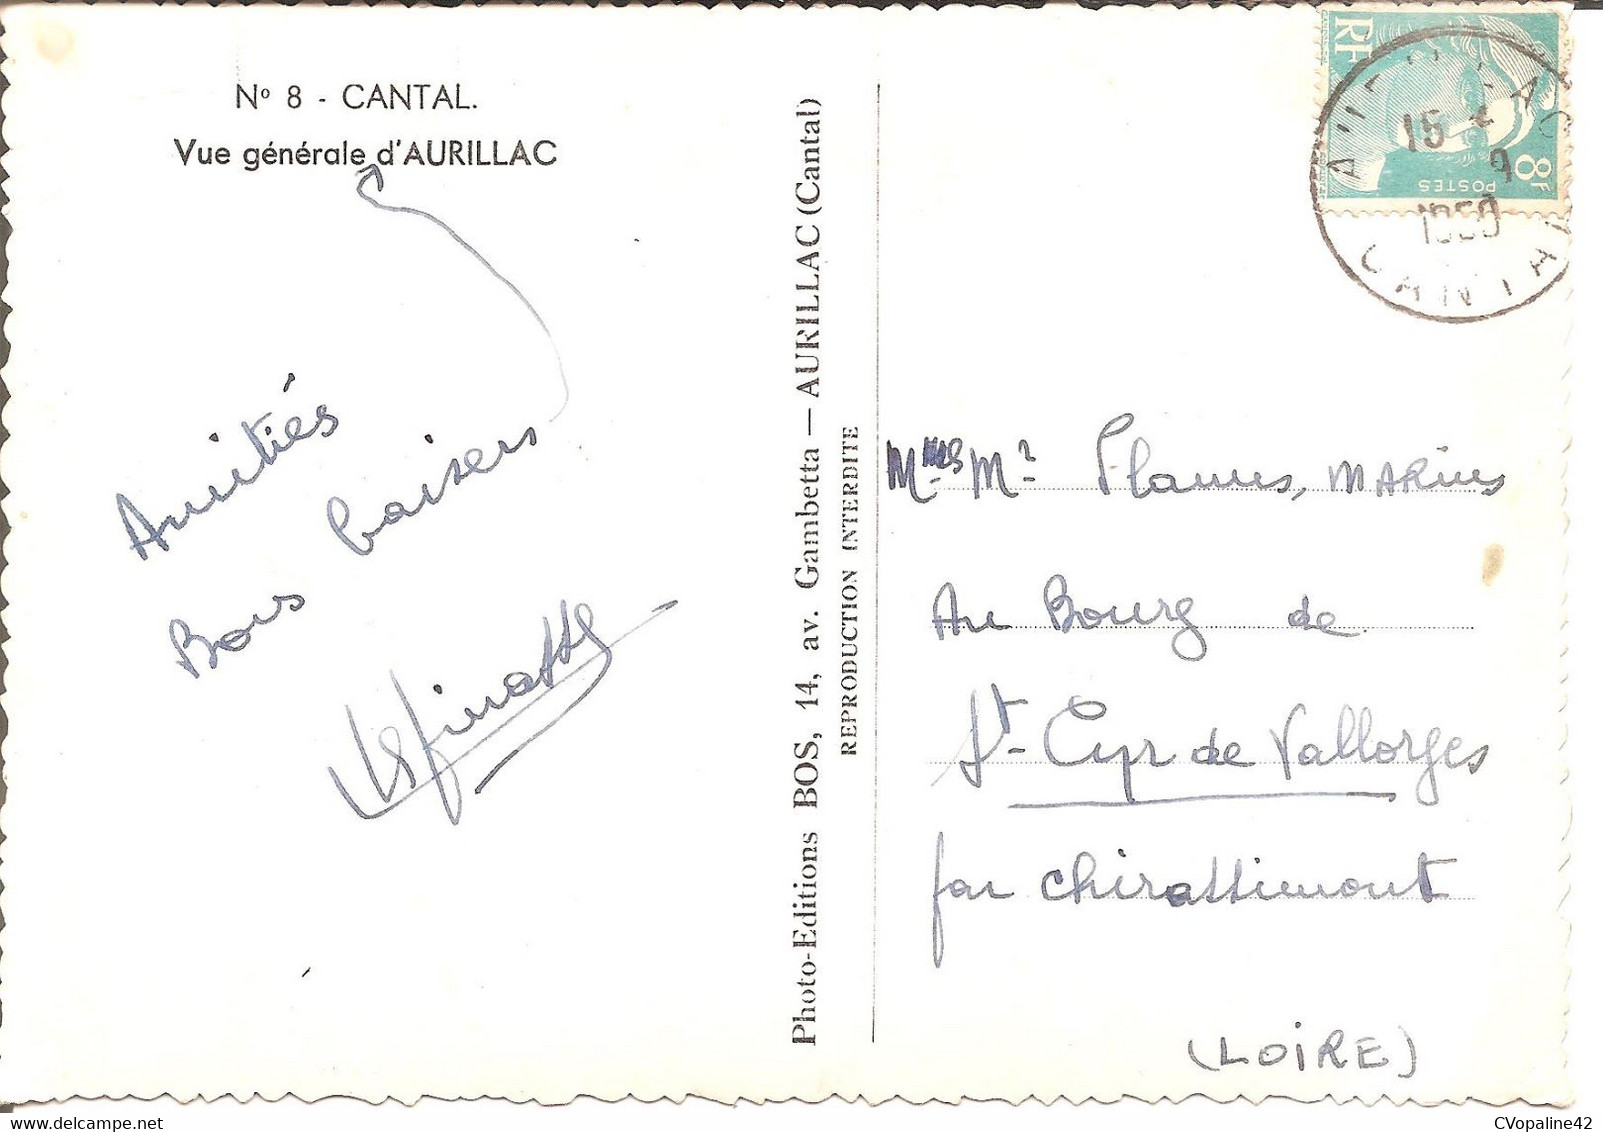 Nº 8 - CANTAL.
Vue générale d'AURILLAC
Amitiés
Bons baisers
Photo-Editions BOS, 14, av. Gambetta — AURILLAC (Cantal)
REPRODUCTION INTERDITE
RF
8F
POSTES
AURILLAC
15 9
1950
CANTAL
Mmes Mr Plasses, MARius
Au Bourg de
St-Cyr de Vallorges
par Chirassimont
(LOIRE)
CVopaline42